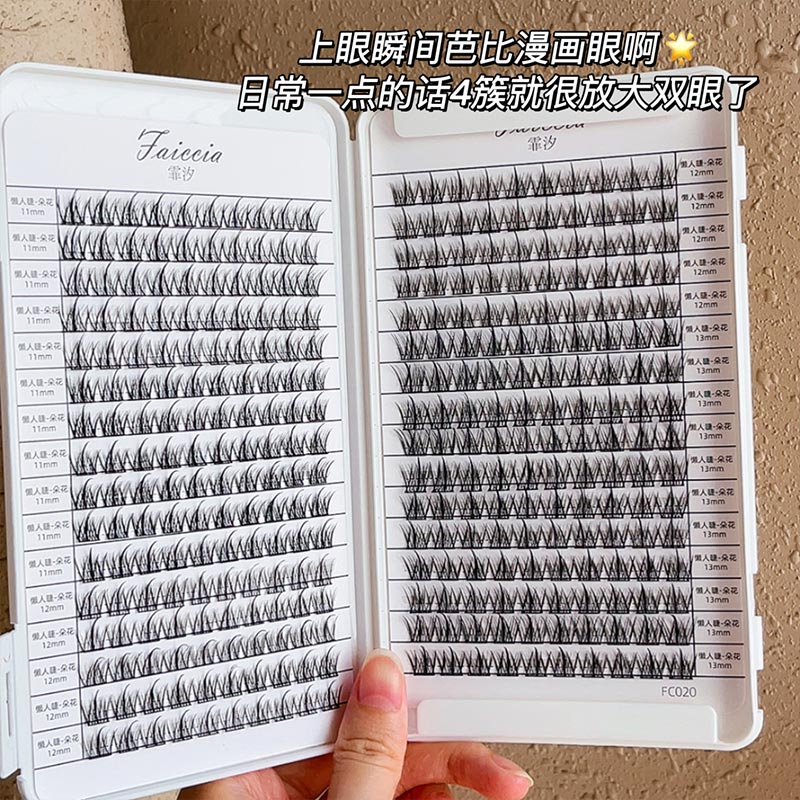 上眼瞬间芭比漫画眼啊
日常一点的话4簇就很放大双眼了
Faiccia
霏汐
懒人睫-朵花
11mm
懒人睫-朵花
11mm
懒人睫-朵花
11mm
懒人睫-朵花
11mm
懒人睫-朵花
11mm
懒人睫-朵花
11mm
懒人睫-朵花
11mm
懒人睫-朵花
11mm
懒人睫-朵花
11mm
懒人睫-朵花
11mm
懒人睫-朵花
11mm
懒人睫-朵花
12mm
懒人睫-朵花
12mm
懒人睫-朵花
12mm
懒人睫-朵花
12mm
懒人睫-朵花
12mm
霏汐
懒人睫-朵花
12mm
懒人睫-朵花
12mm
懒人睫-朵花
12mm
懒人睫-朵花
12mm
懒人睫-朵花
12mm
懒人睫-朵花
13mm
懒人睫-朵花
13mm
懒人睫-朵花
13mm
懒人睫-朵花
13mm
懒人睫-朵花
13mm
懒人睫-朵花
13mm
懒人睫-朵花
13mm
懒人睫-朵花
13mm
懒人睫-朵花
13mm
懒人睫-朵花
13mm
懒人睫-朵花
13mm
FC020